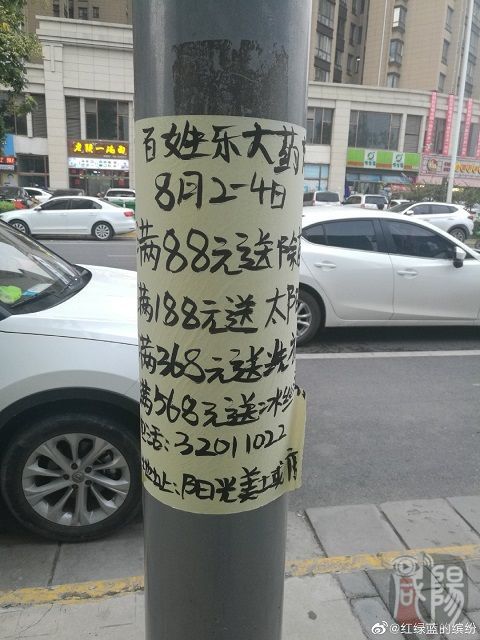 百姓乐大药
8月2-4日
满88元送除
满188元送太阳
满368元送洗衣
满568元送冰丝
电话:32011022
地址:阳光美域府
老陕一碗面
咸陽
@红绿蓝的缤纷